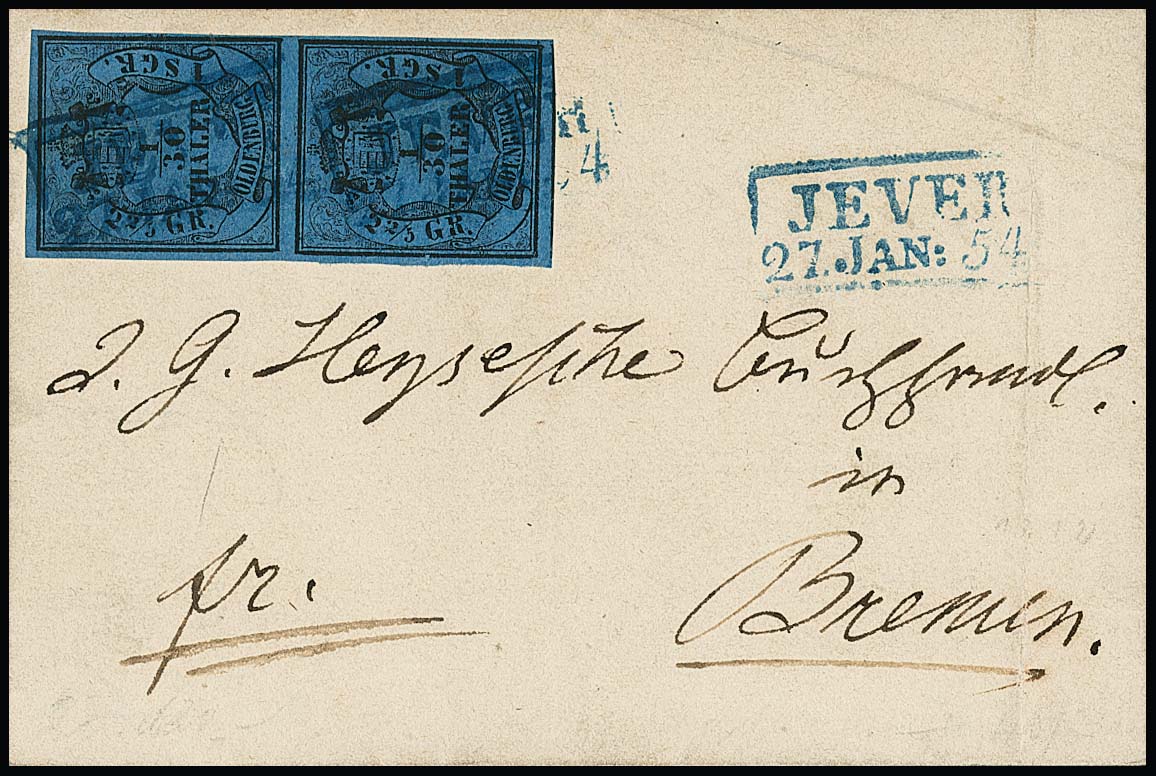 1 SGR.
1/30
THALER
OLDENBURG
2 2/5 GR.
1 SGR.
1/30
THALER
OLDENBURG
2 2/5 GR.
JEVER
27. JAN: 54
J. G. Heysesche Buchhandl.
in
Bremen.
fr.